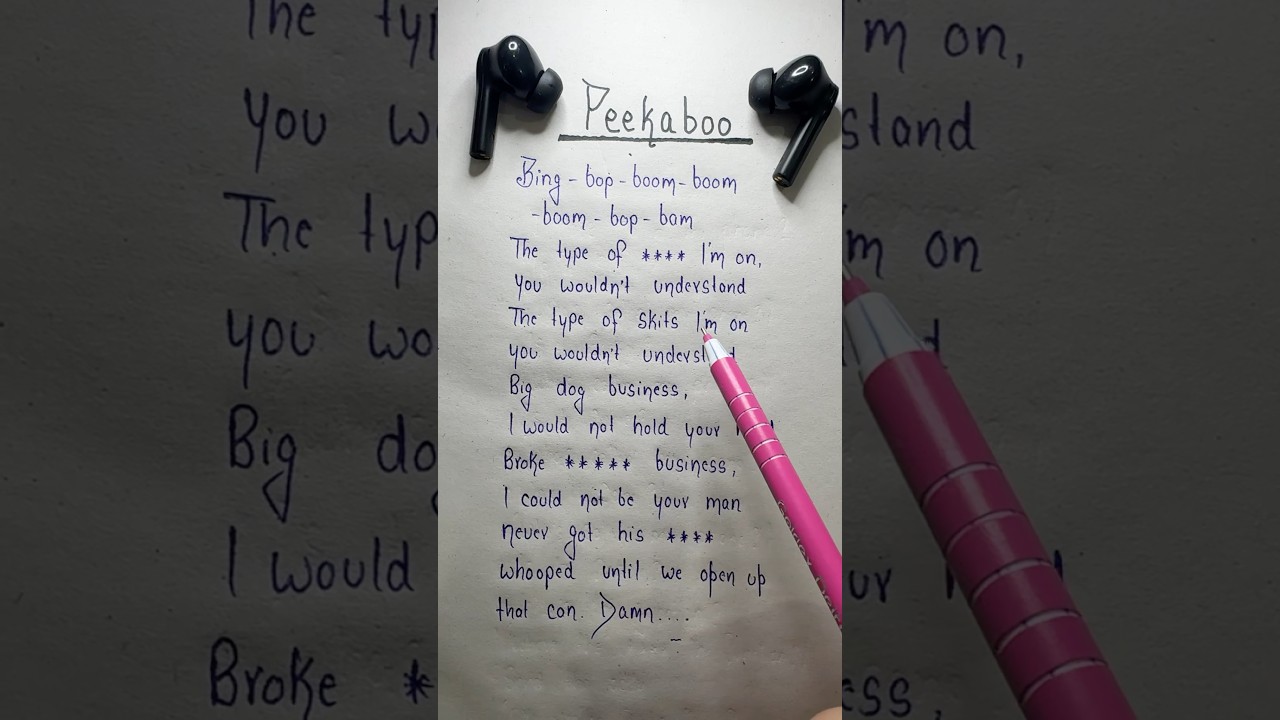 Peekaboo
Bing - bop - boom - boom
- boom - bop - bam
The type of **** I'm on,
you wouldn't understand
The type of skits I'm on
you wouldn't underst d
Big dog business,
I would not hold your
Broke ***** business,
I could not be your man
never got his ****
whooped until we open up
that can. Damn....